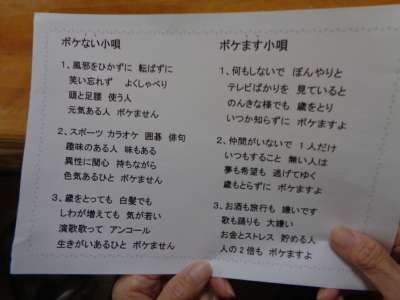 ボケない小唄
1、風邪をひかずに 転ばずに
笑い忘れず よくしゃべり
頭と足腰 使う人
元気ある人 ボケません
2、スポーツ カラオケ 囲碁 俳句
趣味のある人 味もある
異性に関心 持ちながら
色気あるひと ボケません
3、歳をとっても 白髪でも
しわが増えても 気が若い
演歌歌って アンコール
生きがいあるひと ボケません
ボケます小唄
1、何もしないで ぼんやりと
テレビばかりを 見ていると
のんきな様でも 歳をとり
いつか知らずに ボケますよ
2、仲間がいないで 1人だけ
いつもすること 無い人は
夢も希望も 逃げてゆく
歳もとらずに ボケますよ
3、お酒も旅行も 嫌いです
歌も踊りも 大嫌い
お金とストレス 貯める人
人の2倍も ボケますよ